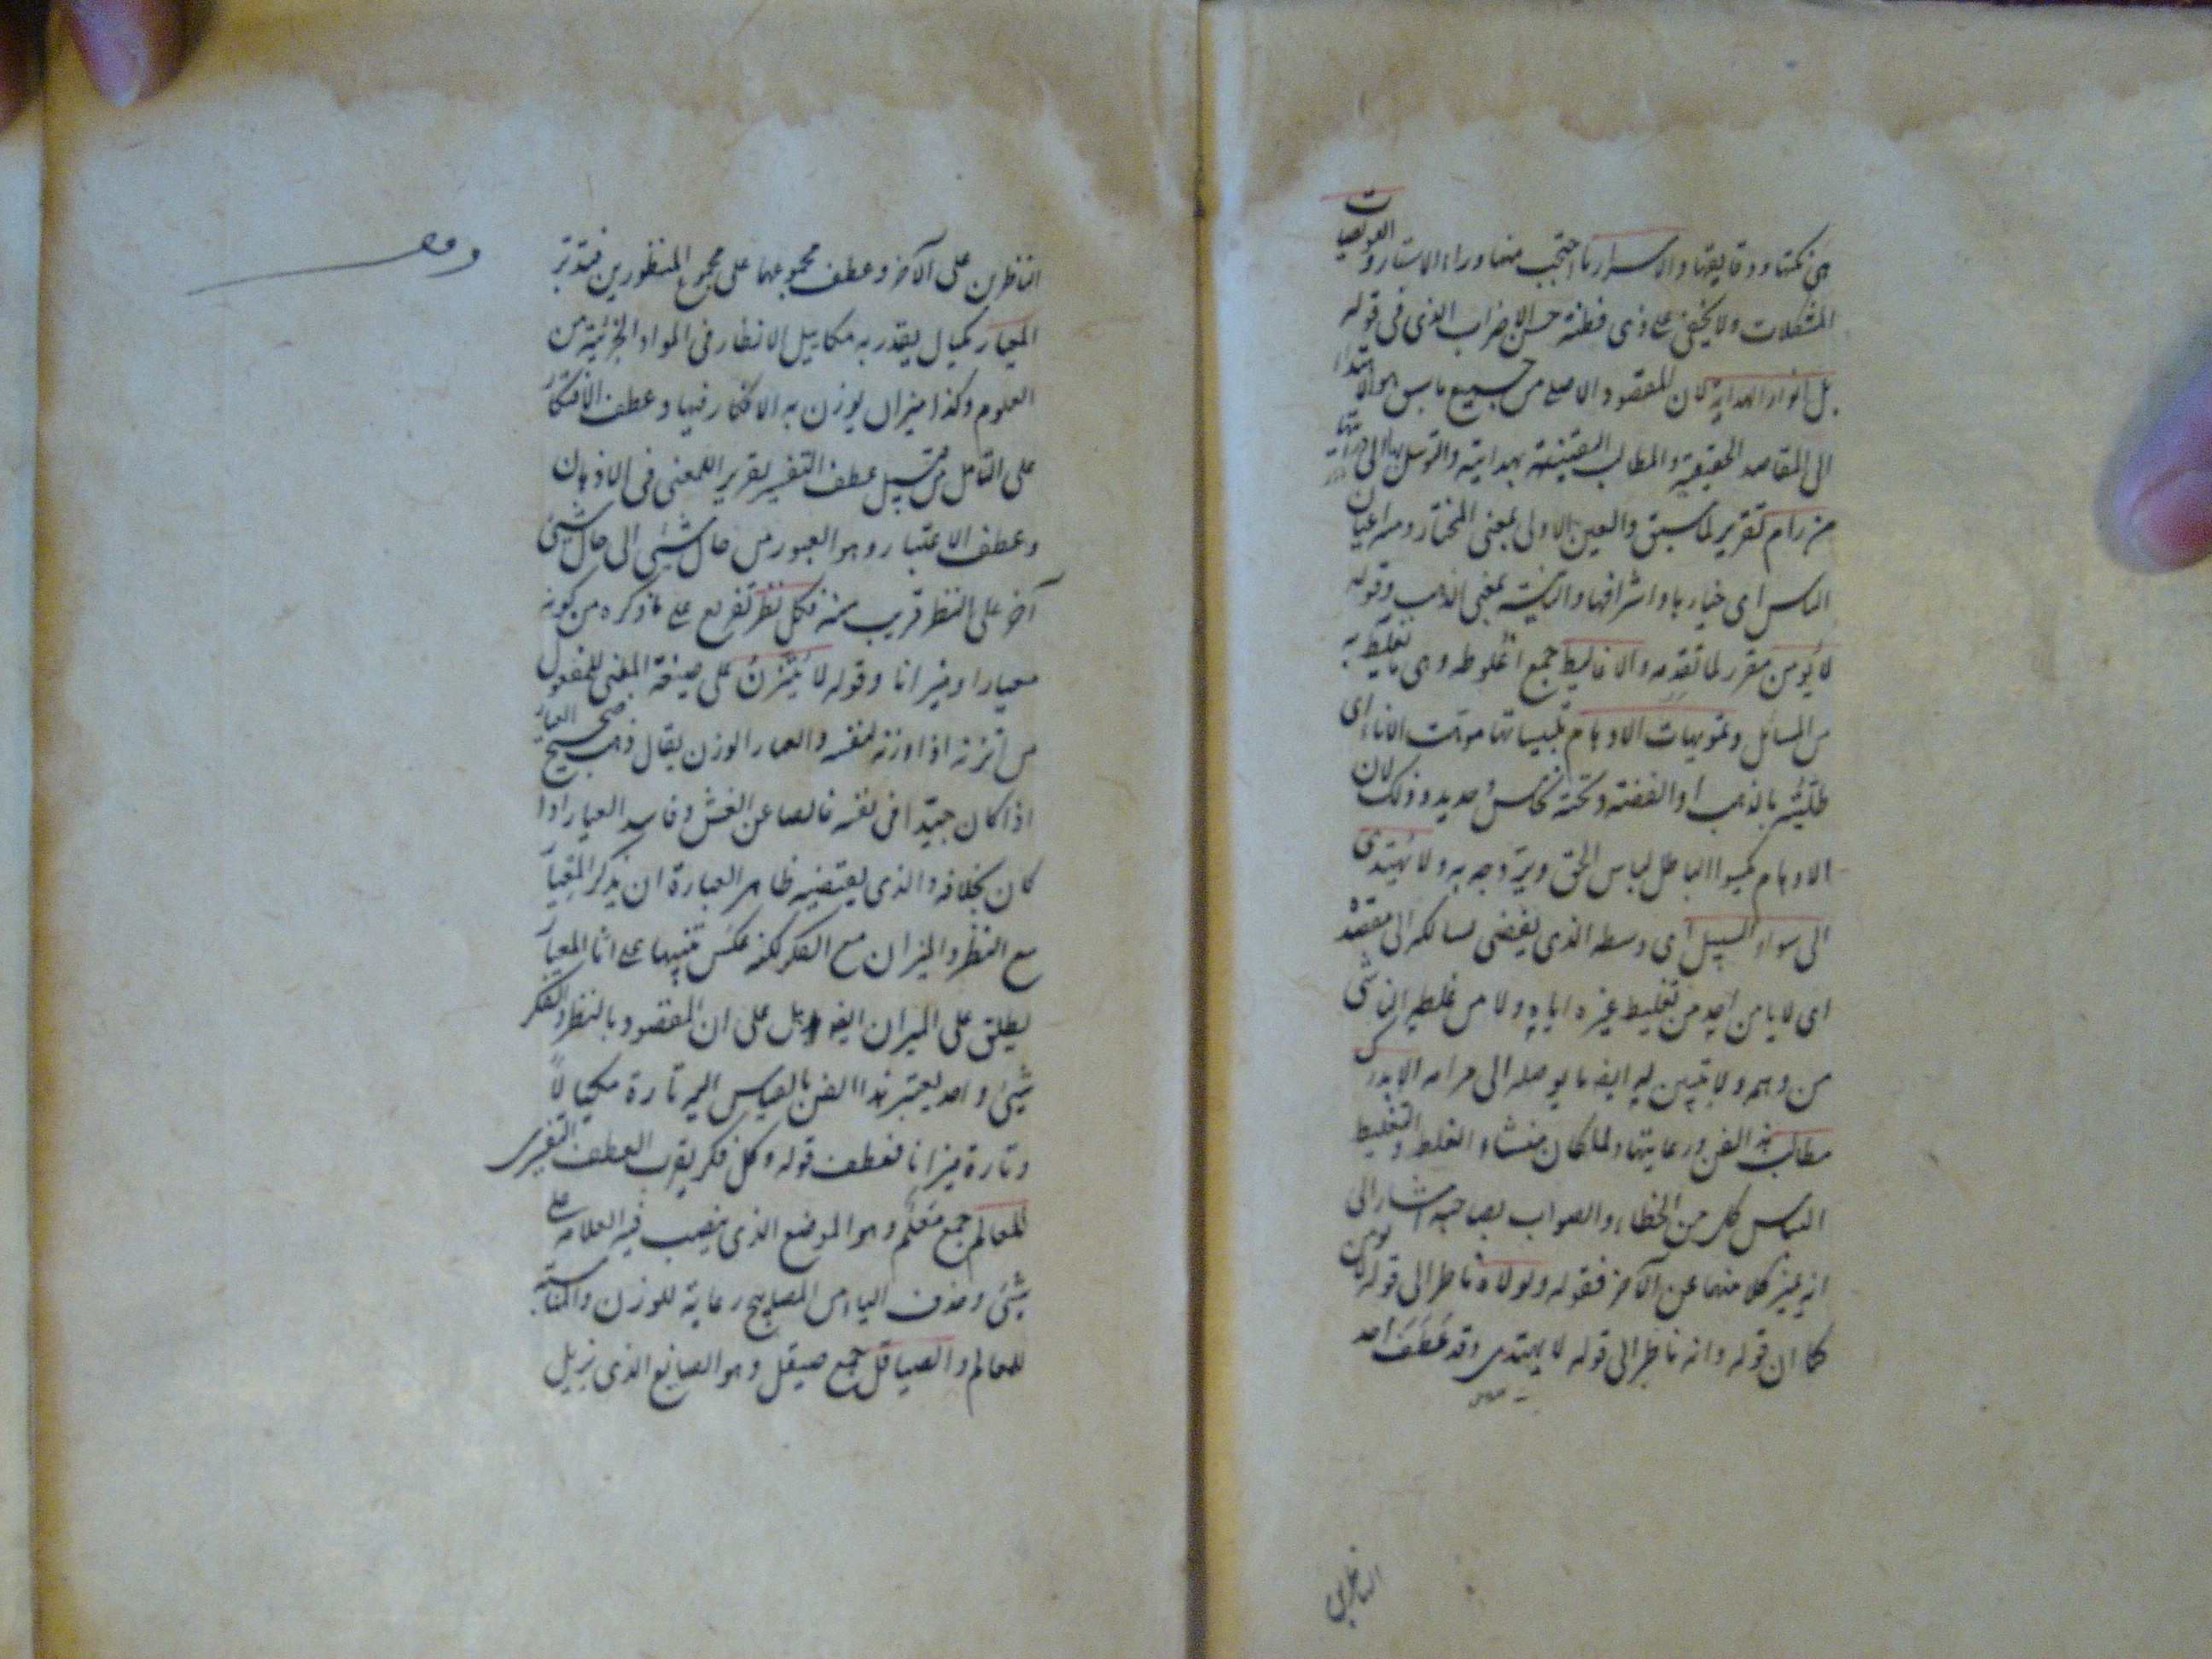 هى نكتها ودقايقها والاسرار ما احتجب منها وراء الاستار والعويصات
المشكلات ولا يخفى على ذى فطنة حسن الاضراب الذى فى قوله
بل انوار الهداية لان المقصود الاصلى من جميع ما سبق هو الاهتداء
الى المقاصد الحقيقية والمطالب اليقينية بهدايته والتوسل بها الى
من رام تقرير لما سبق والعين الاولى بمعنى المختار ومنه اعيان
الناس اى خيارها واشرافها والثانية بمعنى الذهب وقوله
لا يؤمن مقرر لما تقدمه والاغاليط جمع اغلوطه وهى ما يغلط به
من المسائل وتمويهات الاوهام تلبيساتها موهت الاناء اى
طليته بالذهب او الفضة وتحته نحاس او حديد وذلك لان
الاوهام تكسوا الباطل لباس الحق ويروجه به ولا يهتدى
الى سواء السبيل اى وسطه الذى يفضى لسالكه الى مقصده
اى لا يامن احد من تغليط غيره اياه ولا من غلطه الناشى
من وهمه ولا يتبين له ايضا ما يوصله الى مرامه الا بدرك
مطالب هذا الفن ورعايتها ولما كان منشاء الغلط والتغليط
التباس كل من الخطاء والصواب بصاحبه اشار الى
انه يميز كلا منهما عن الآخر فقوله ولولاه ناظر الى قوله لا يؤمن
كما ان قوله وانه ناظر الى قوله لا يهتدى وقد عطف احد
الناظرين
الناظرين على الآخر وعطف مجموعهما على مجموع المنظورين فتدبر
المعيار كميال يقدر به مكاييل الانظار فى المواد الجزئية من
العلوم وكذا ميزان يوزن به الافكار فيها وعطف الافتكار
على التامل من قبيل عطف التفسير لتقرير المعنى فى الاذهان
وعطف الاعتبار وهو العبور من حال شيئ الى حال شيئ
آخر على النظر قريب منه فكل نظر تفريع على ما ذكره من كونه
معيارا وميزانا وقوله لا يتزن على صيغة المبنى للمفعول
من اتزنه اذا وزنه لنفسه والعيار الوزن يقال ذهب صحيح العيار
اذا كان جيدا فى نفسه خالصا عن الغش وفاسد العيار اذا
كان بخلافه والذى يقتضيه ظاهر العبارة ان يذكر المعيار
مع النظر والميزان مع الفكر لكنه عكس تنبيها على ان المعيار
يطلق على الميزان ايضا بل على ان المقصود بالنظر والفكر
شيئ واحد يعتبر هذا الفن بالقياس اليه تارة مكيالا
وتارة ميزانا فعطف قوله وكل فكر يقرب العطف التفسيرى
للمعالم جمع معلم وهو الموضع الذى ينصب فيه العلامة على
شيئ وحذف الياء من المصابيح رعاية للوزن والمناسبة
للمعالم والصياقل جمع صيقل وهو الصانع الذى يزيل